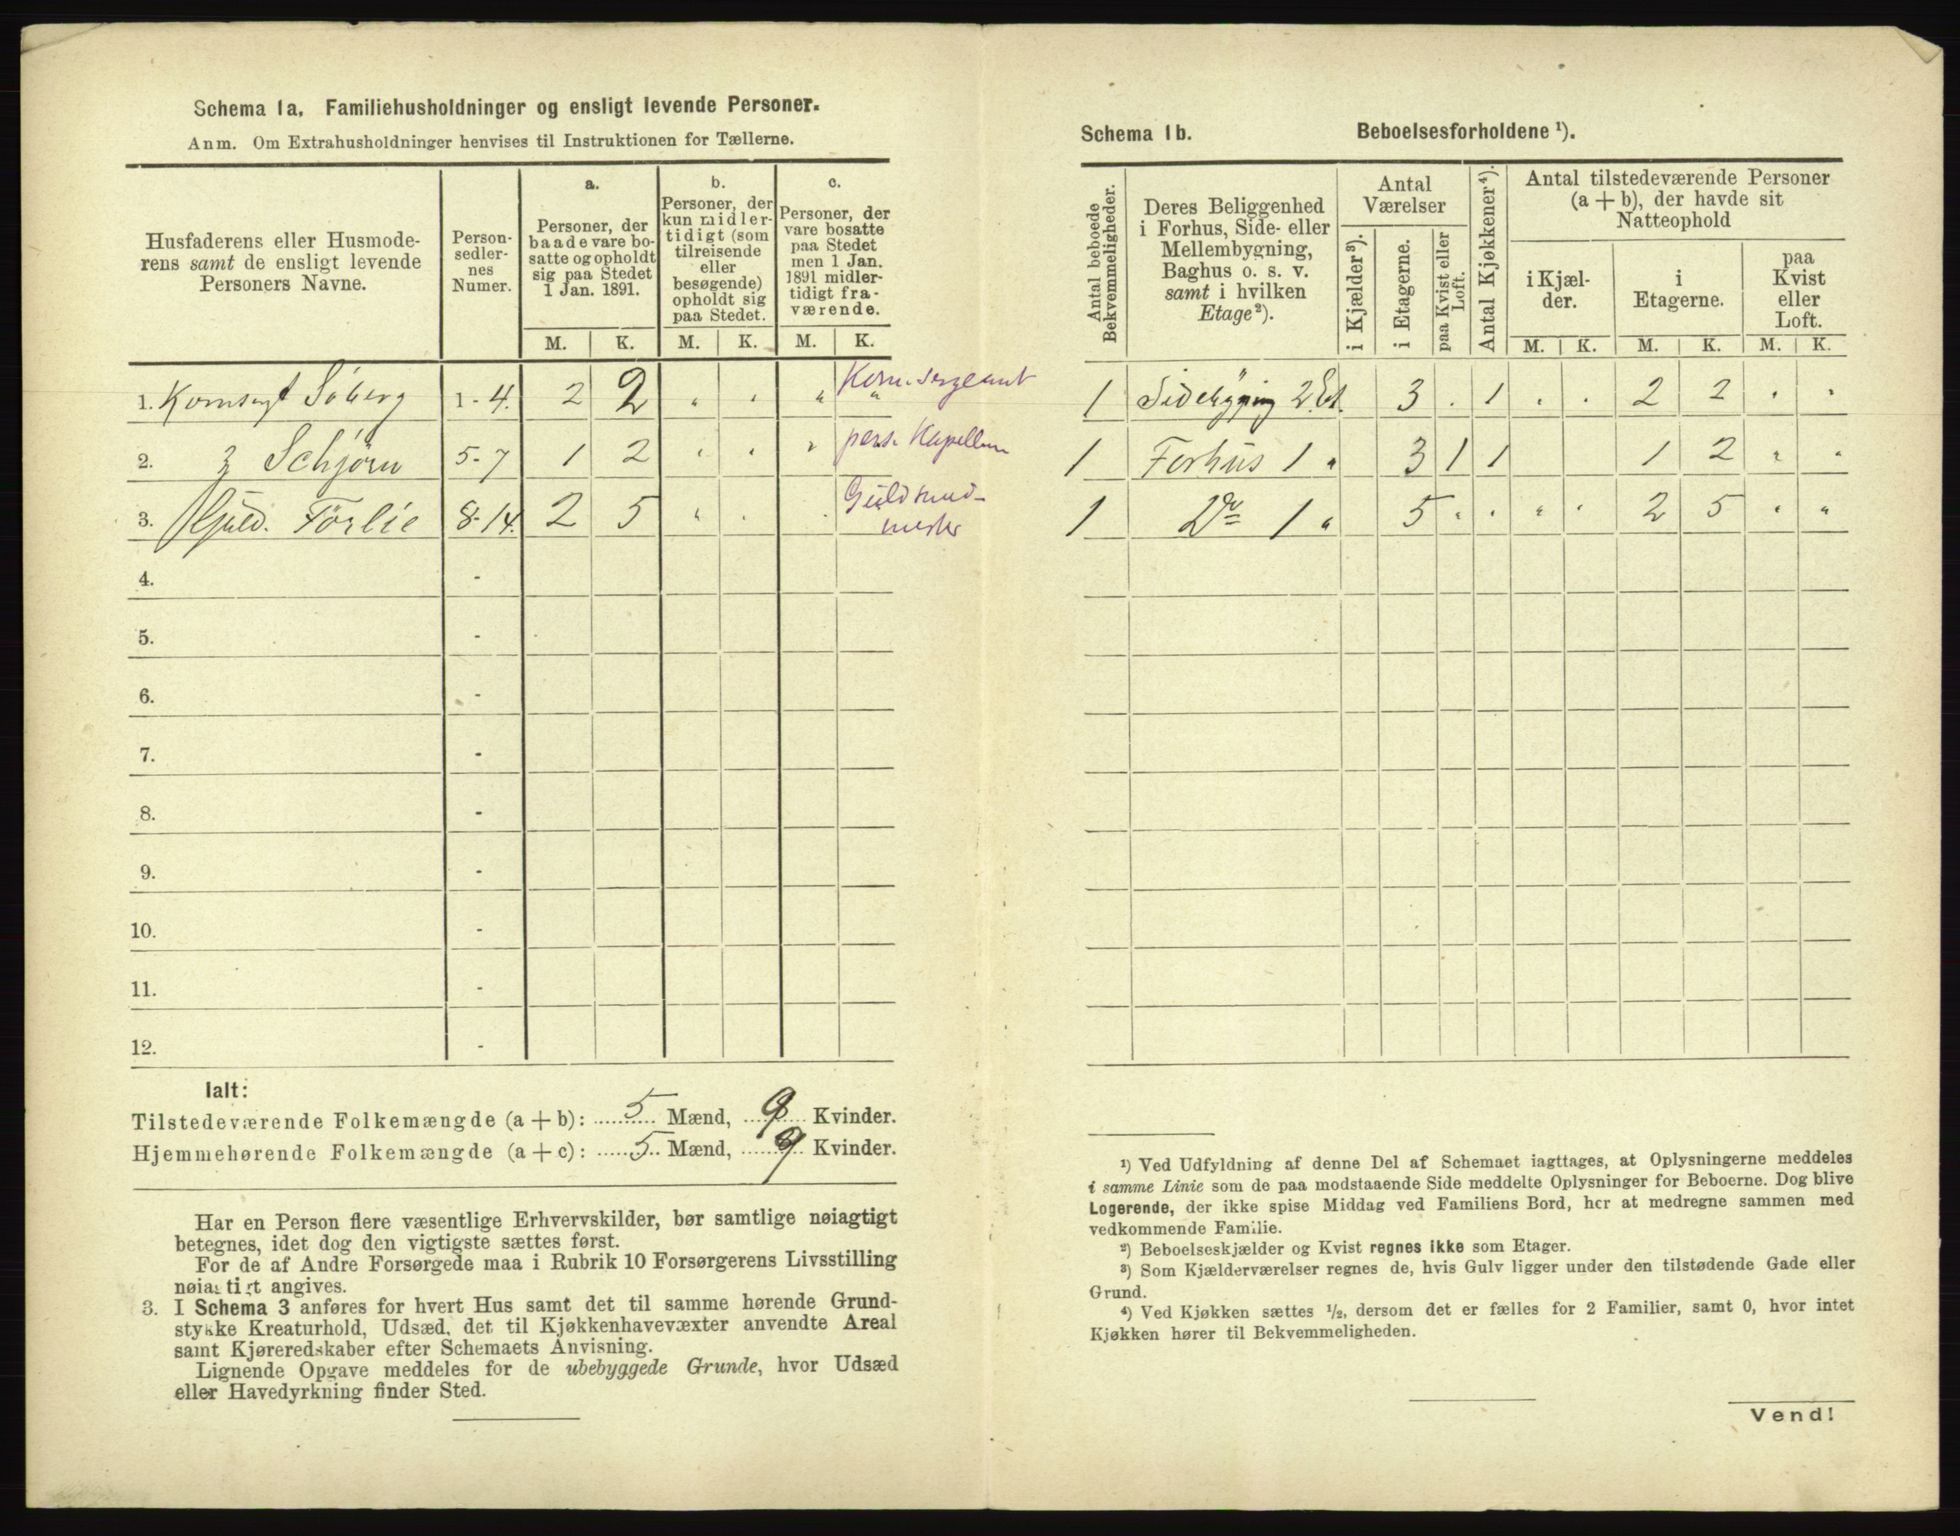 Schema 1a. Familiehusholdninger og ensligt levende Personer.
Anm. Om Extrahusholdninger henvises til Instruktionen for Tællerne.
Husfaderens eller Husmode-
rens samt de ensligt levende
Personers Navne.
Person-
sedler-
nes
Numer.
a.
Personer, der
baade vare bo-
satte og opholdt
sig paa Stedet
1 Jan. 1891.
b.
Personer, der
kun midler-
tidigt (som
tilreisende
eller
besøgende)
opholdt sig
paa Stedet.
c.
Personer, der
vare bosatte
paa Stedet
men 1 Jan.
1891 midler-
tidigt fra-
værende.
M. K. M. K. M. K.
1. Komsergt Söberg 1-4. 2 2 " " " " Kom. sergeant
2. Schjörn 5-7 1 2 " " " pers. Kapellan
3. Guld. Förlie 8-14. 2 5 " . . Guldsmed-
mester
4. -
5. -
6. -
7. -
8. -
9. -
10. -
11. -
12. -
Ialt:
Tilstedeværende Folkemængde (a + b): 5 Mænd, 9 Kvinder.
Hjemmehørende Folkemængde (a + c): 5 Mænd, 9 Kvinder.
Har en Person flere væsentlige Erhvervskilder, bør samtlige nøiagtigt
betegnes, idet dog den vigtigste sættes først.
For de af Andre Forsørgede maa i Rubrik 10 Forsørgerens Livsstilling
nøiagtigt angives.
3. I Schema 3 anføres for hvert Hus samt det til samme hørende Grund-
stykke Kreaturhold, Udsæd, det til Kjøkkenhavevæxter anvendte Areal
samt Kjøreredskaber efter Schemaets Anvisning.
Lignende Opgave meddeles for de ubebyggede Grunde, hvor Udsæd
eller Havedyrkning finder Sted.
Schema 1b. Beboelsesforholdene ¹).
Antal beboede
Bekvemmeligheder.
Deres Beliggenhed
i Forhus, Side- eller
Mellembygning,
Baghus o. s. v.
samt i hvilken
Etage²).
Antal
Værelser
i Kjælder³).
i Etagerne.
paa Kvist eller
Loft.
Antal Kjøkkener⁴).
Antal tilstedeværende Personer
(a + b), der havde sit
Natteophold
i Kjæl-
der.
i
Etagerne.
paa
Kvist
eller
Loft.
M. K. M. K. M. K.
1 Sidebygnig 2 Et. 3 . 1 . . 2 2 . "
1 Forhus 1 " 3 1 1 1 2 " "
1 Do 1 " 5 " " " " 2 5 " "
¹) Ved Udfyldning af denne Del af Schemaet iagttages, at Oplysningerne meddeles
i samme Linie som de paa modstaaende Side meddelte Oplysninger for Beboerne. Dog blive
Logerende, der ikke spise Middag ved Familiens Bord, her at medregne sammen med
vedkommende Familie.
²) Beboelseskjælder og Kvist regnes ikke som Etager.
³) Som Kjælderværelser regnes de, hvis Gulv ligger under den tilstødende Gade eller
Grund.
⁴) Ved Kjøkken sættes ½, dersom det er fælles for 2 Familier, samt 0, hvor intet
Kjøkken hører til Bekvemmeligheden.
Vend!